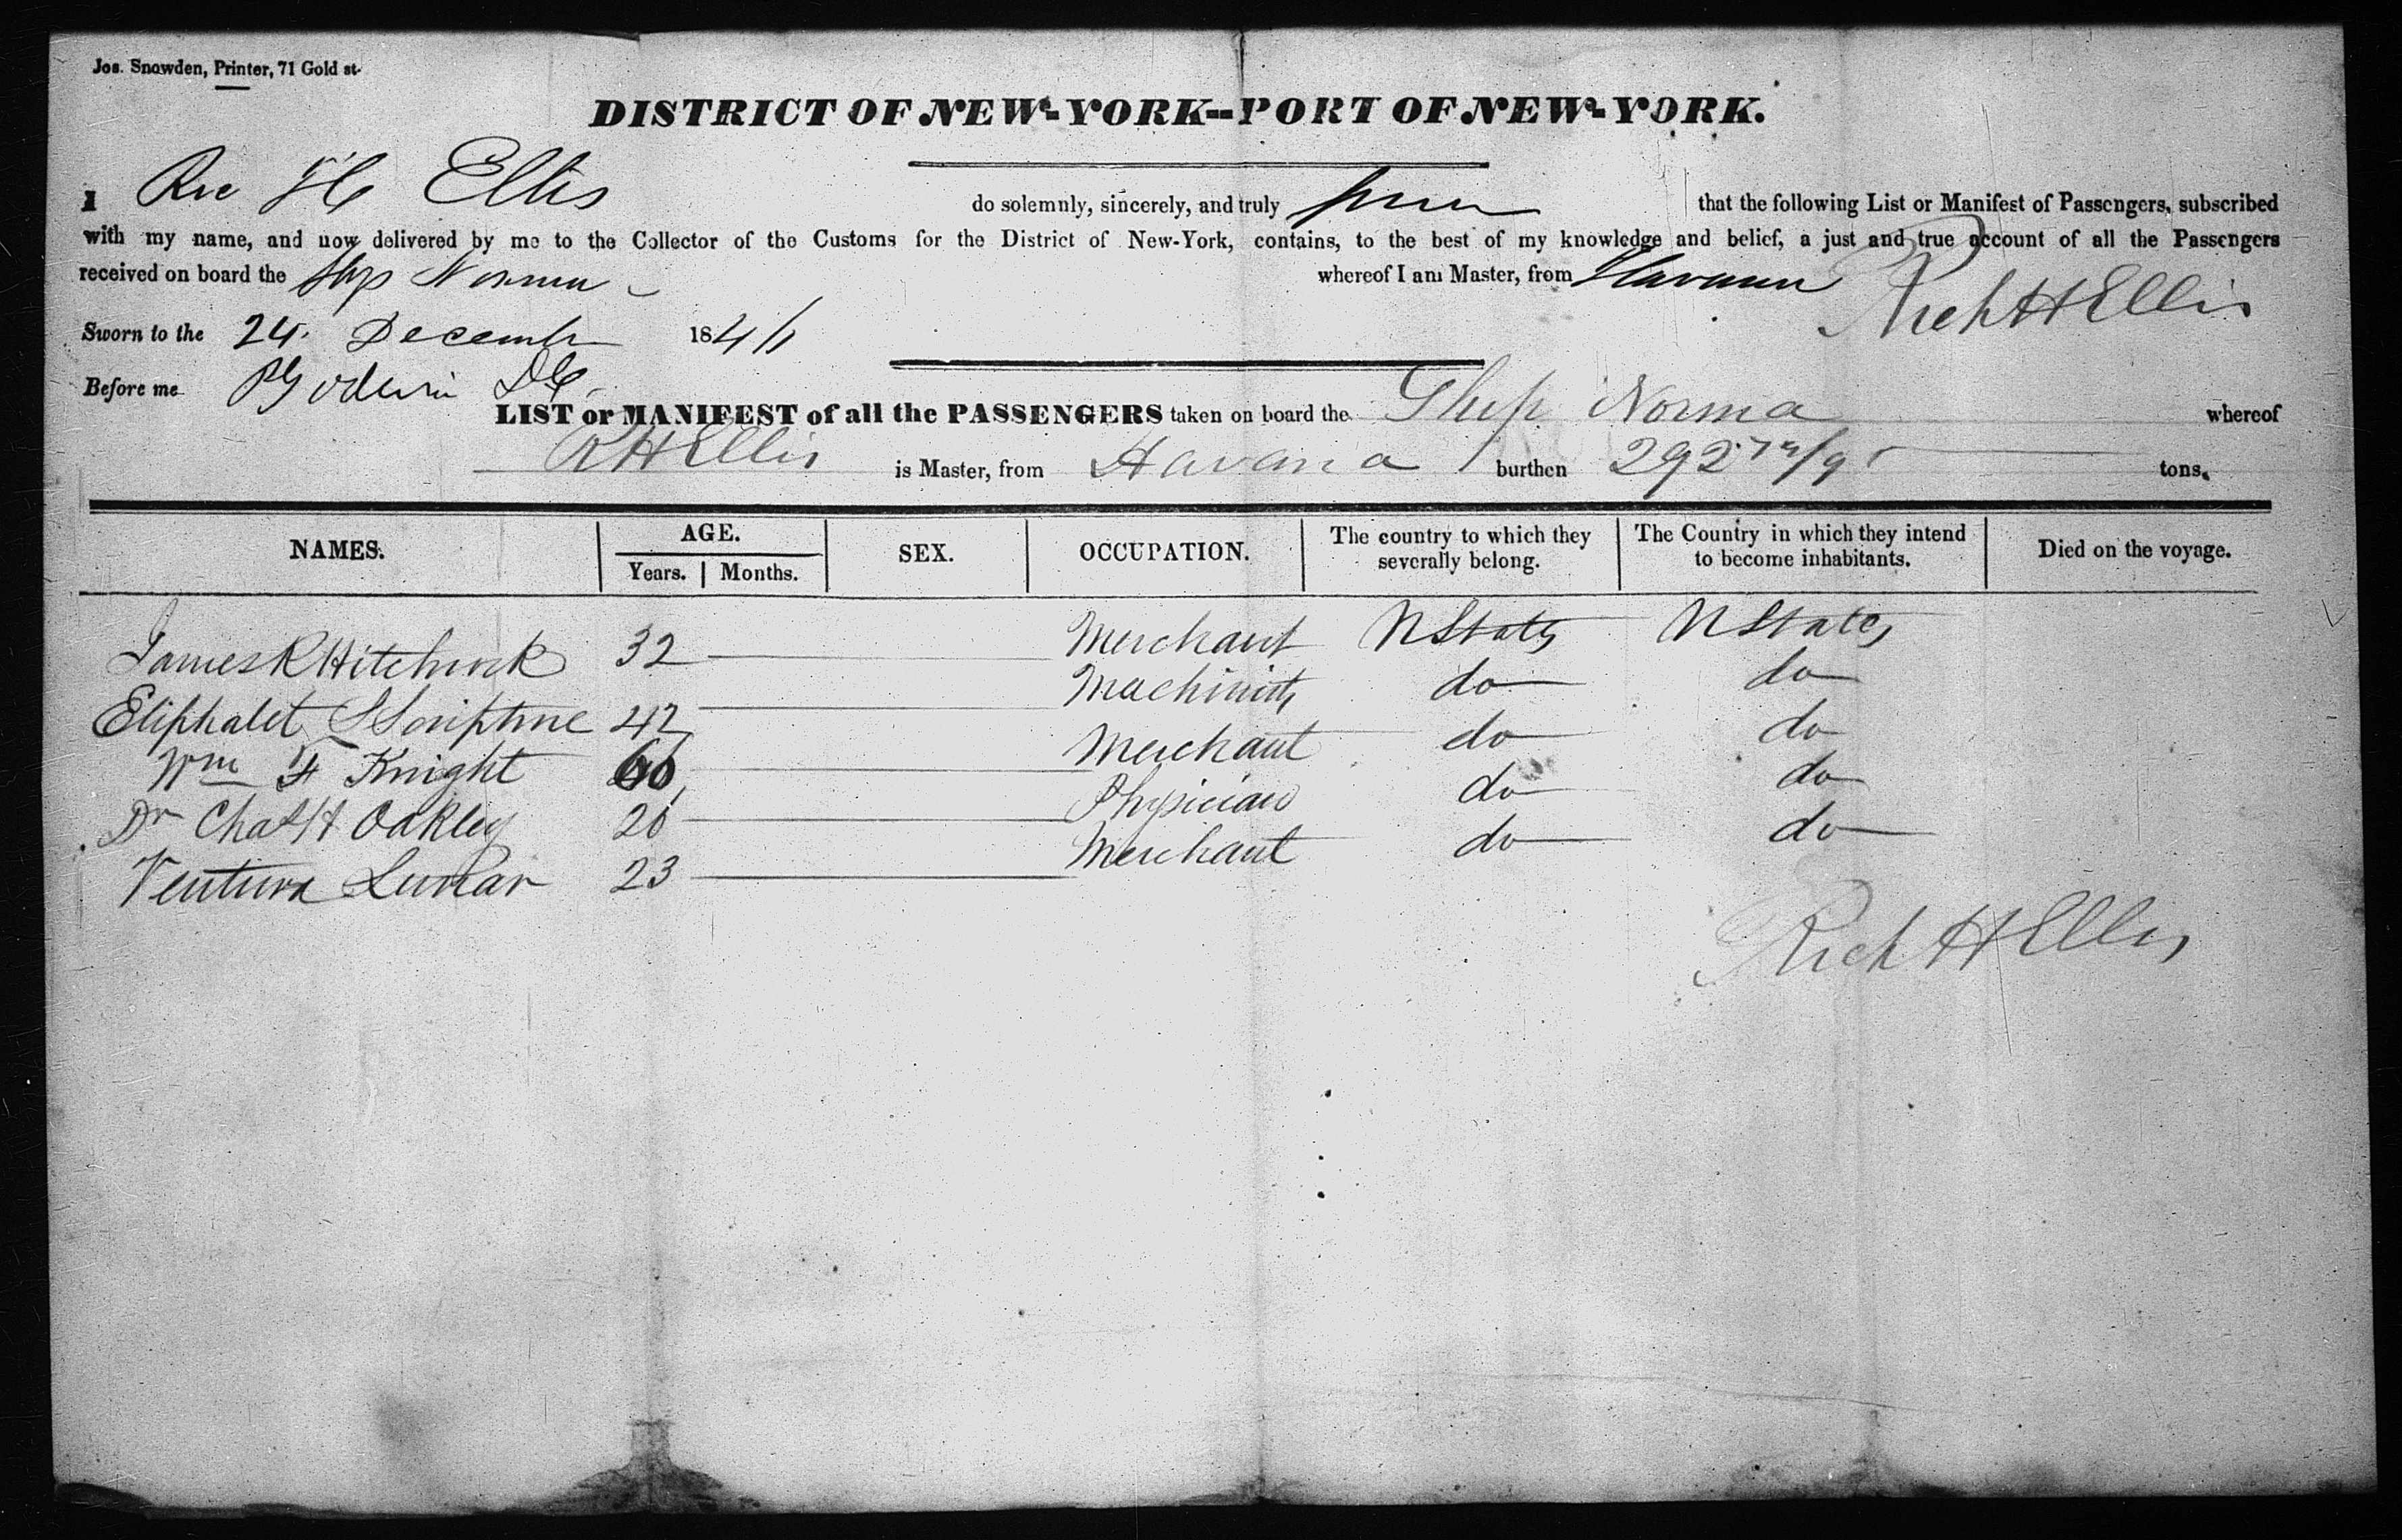 Jos. Snowden, Printer, 71 Gold st.
DISTRICT OF NEW-YORK--PORT OF NEW-YORK.
I Ric H Ellis do solemnly, sincerely, and truly swear that the following List or Manifest of Passengers, subscribed
with my name, and now delivered by me to the Collector of the Customs for the District of New-York, contains, to the best of my knowledge and belief, a just and true account of all the Passengers
received on board the Ship Norma whereof I am Master, from Havana
Rich H Ellis
Sworn to the 24. December 184
Before me
LIST or MANIFEST of all the PASSENGERS taken on board the Ship Norma whereof
R H Ellis is Master, from Havana burthen 292 tons.
NAMES. AGE. SEX. OCCUPATION. The country to which they severally belong. The Country in which they intend to become inhabitants. Died on the voyage.
Years. Months.
James R Hitchcock 32 Merchant U States U States
Eliphalet S Scripture 42 Machinist do do
Wm F Knight Merchant do do
Dr Chas H Oakley 26 Physician do do
Ventura 23 Merchant do do
Rich H Ellis